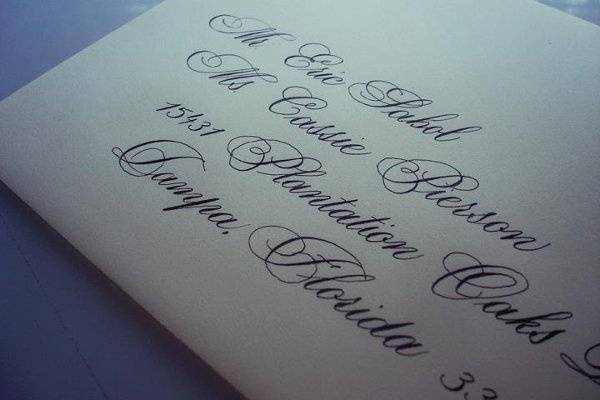 Mr. Eric Sabol
Ms. Cassie Pierson
15431 Plantation Oaks
Tampa, Florida 33